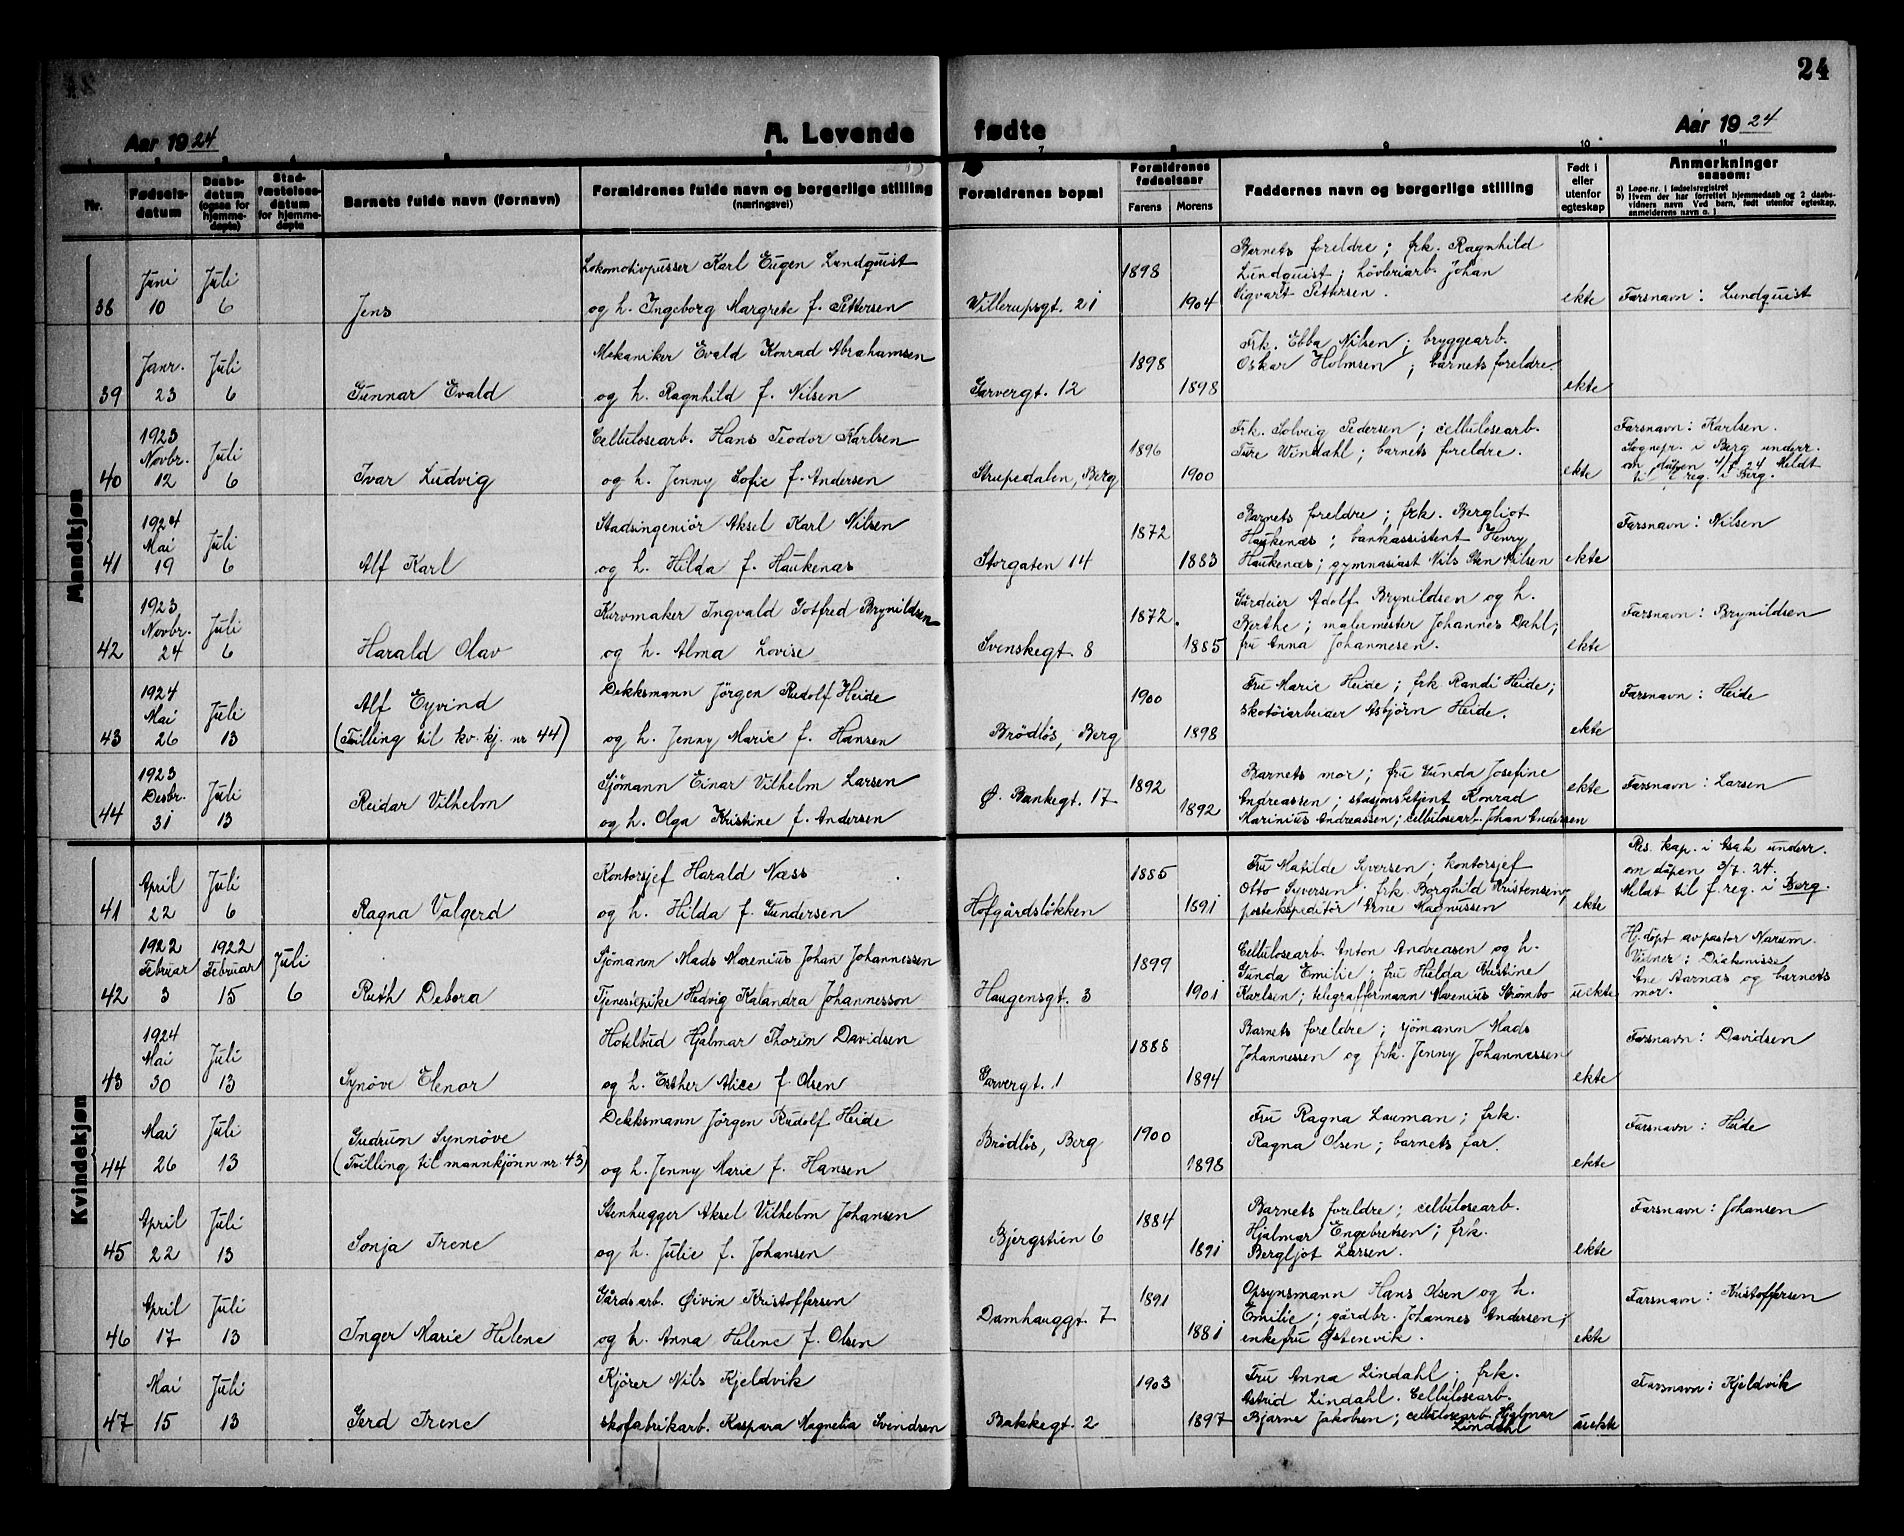 24
Aar 1924
A. Levende fødte
Aar 1924
Nr.
Fødselsdatum
Daabsdatum (ogsaa for hjemmedøpte)
Stadfæstelsesdatum for hjemmedøpte
Barnets fulde navn (fornavn)
Forældrenes fulde navn og borgerlige stilling (næringsvei)
7
Forældrenes bopæl
Forældrenes fødselsaar
Farens
Morens
9
Faddernes navn og borgerlige stilling
10
Født i eller utenfor egteskap
11
Anmerkninger saasom:
a) Løpe-nr. i fødselsregistret
b) Hvem der har forrettet hjemmedaab og 2 daabsvidners navn Ved barn, født utenfor egteskap, anmelderens navn o. l
Mandkjøn
38 Juni 10 Juli 6 Jens
Lokomotivpusser Karl Eugen Lundquist
og h. Ingeborg Margrete f. Pettersen
Villerupsgt. 21 1898 1904
Barnets foreldre; frk. Ragnhild
Lundquist; høvleriarb. Johan
Sigvart Pettersen.
ekte Farsnavn: Lundquist
39 Janr. 23 Juli 6 Gunnar Evald
Mekaniker Evald Konrad Abrahamsen
og h. Ragnhild f. Nilsen
Garvergt. 12 1898 1898
Frk. Ebba Nilsen; bryggearb.
Oskar Holmsen; barnets foreldre.
ekte
40 1923 Novbr. 12 Juli 6 Ivar Ludvig
Cellulosearb. Hans Teodor Karlsen
og h. Jenny Sofie f. Andersen
Strupedalen, Berg 1896 1900
Frk. Solveig Pedersen; cellulosearb.
Ture Wundahl; barnets foreldre.
ekte Farsnavn: Karlsen.
Sognepr. i Berg underr.
om dåpen 24 Meldt
til f. reg. i Berg.
41 1924 Mai 19 Juli 6 Alf Karl
Stadsingeniør Aksel Karl Nilsen
og h. Hilda f. Haukenæs
Storgaten 14 1872 1883
Barnets foreldre; frk. Bergliot
Haukenæs; bankassistent Henry
Haukenæs; gymnasiast Nils Sten Nilsen
ekte Farsnavn: Nilsen
42 1923 Novbr. 24 Juli 6 Harald Olav
Kurvmaker Ingvald Gotfred Brynildsen
og h. Alma Lovise
Svenskegt. 8 1872. 1885
Gårdeier Adolf Brynildsen og h.
Berthe; malermester Johannes Dahl;
fru Anna Johannesen.
ekte Farsnavn: Brynildsen
43 1924 Mai 26 Juli 13 Alf Eyvind
(Tvilling til kv. kj. nr 44)
Dekksmann Jörgen Rudolf Heide
og h. Jenny Marie f. Hansen
Brödløs, Berg 1900 1898
Fru Marie Heide; frk Randi Heide;
skotöiarbeider Asbjörn Heide.
ekte Farsnavn: Heide
44 1923 Desbr. 31 Juli 13 Reidar Vilhelm
Sjömann Einar Vilhelm Larsen
og h. Olga Kristine f. Andersen
Ø. Bankegt. 17 1892 1892
Barnets mor; fru Gunda Josefine
Andreassen; stasjonsbetjent Konrad
Marinius Andreassen; cellulosearb. Johan Andersen
ekte Farsnavn: Larsen
Kvindekjøn
41 April 22 Juli 6 Ragna Valgerd
Kontorsjef Harald Næss
og h. Hilda f. Gundersen
Hofgårdsløkken 1885 1891
Fru Matilde Syversen; kontorsjef
Otto Syversen; frk. Borghild Kristensen;
postekspeditör Arne Magnussen
ekte Res. kap. i Asak underr.
om dåpen 3/7. 24.
Meldt til f. reg. i Berg.
42 1922 Februar 3 1922 Februar 15 Juli 6 Ruth Debora
Sjömann Mads Marenius Johan Johannessen
Tjenestpike Hedvig Kalandra Johannesson
Haugensgt. 3 1899 1901
Cellulosearb. Anton Andreasen og h.
Gunda Emilie; fru Helda Kristine
Karlsen; telegrafformann Marenius Strømbo
uekte Hj. döpt av pastor Narum.
Vidner: Diakonisse
Ane Aarnæs og barnets
mor.
43 1924 Mai 30 Juli 13 Synöve Elenor
Hotelbud Hjalmar Thorin Davidsen
og h. Esther Alice f. Olsen
Garvergt. 1 1888 1894
Barnets foreldre; sjömann Mads
Johannessen og frk. Jenny Johannessen
ekte Farsnavn: Davidsen
44 Mai 26 Juli 13 Gudrun Synnöve
(Tvilling til mannkjönn nr. 43)
Dekksmann Jörgen Rudolf Heide
og h. Jenny Marie f. Hansen
Brödlös, Berg 1900 1898
Fru Ragna Lauman; frk.
Ragna Olsen; barnets far.
ekte Farsnavn: Heide
45 April 22 Juli 13 Sonja Irene
Stenhugger Aksel Vilhelm Johansen
og h. Julie f. Johansen
Bjergstien 6 1884 1891
Barnets foreldre; cellulosearb.
Hjalmar Engebretsen; frk.
Bergljot Larsen.
ekte Farsnavn: Johansen
46 April 17 Juli 13 Inger Marie Helene
Gårdsarb. Øivin Kristoffersen
og h. Anna Helene f. Olsen
Damhauggt. 7 1891 1881
Opsynsmann Hans Olsen og h.
Emilie; gårdbr. Johannes Andersen;
enkefru Østenvik.
ekte Farsnavn: Kristoffersen
47 Mai 15 Juli 13 Gerd Irene
Kjörer Nils Kjeldvik
skofabrikarb. Kaspara Magnelia Svendsen
Bakkegt. 2 1903 1897
Fru Anna Lindahl; frk.
Astrid Lindahl. Cellulosearb.
Bjarne Jakobsen; cellulosearb. Hjalmar
Lindahl
uekte Farsnavn: Kjeldvik